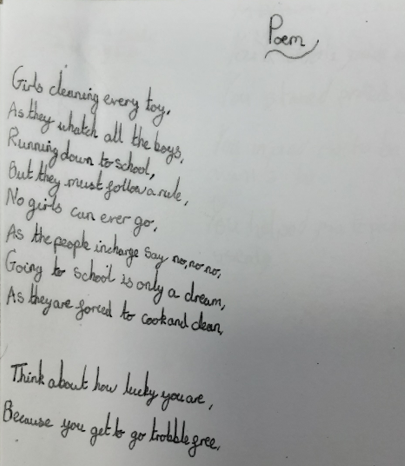 Poem
Girls cleaning every toy,
As they whatch all the boys,
Running down to school,
But they must follow a rule,
No girls can ever go,
As the people incharge say no, no, no,
Going to school is only a dream,
As they are forced to cook and clean,
Think about how lucky you are,
Because you get to go trobble free.